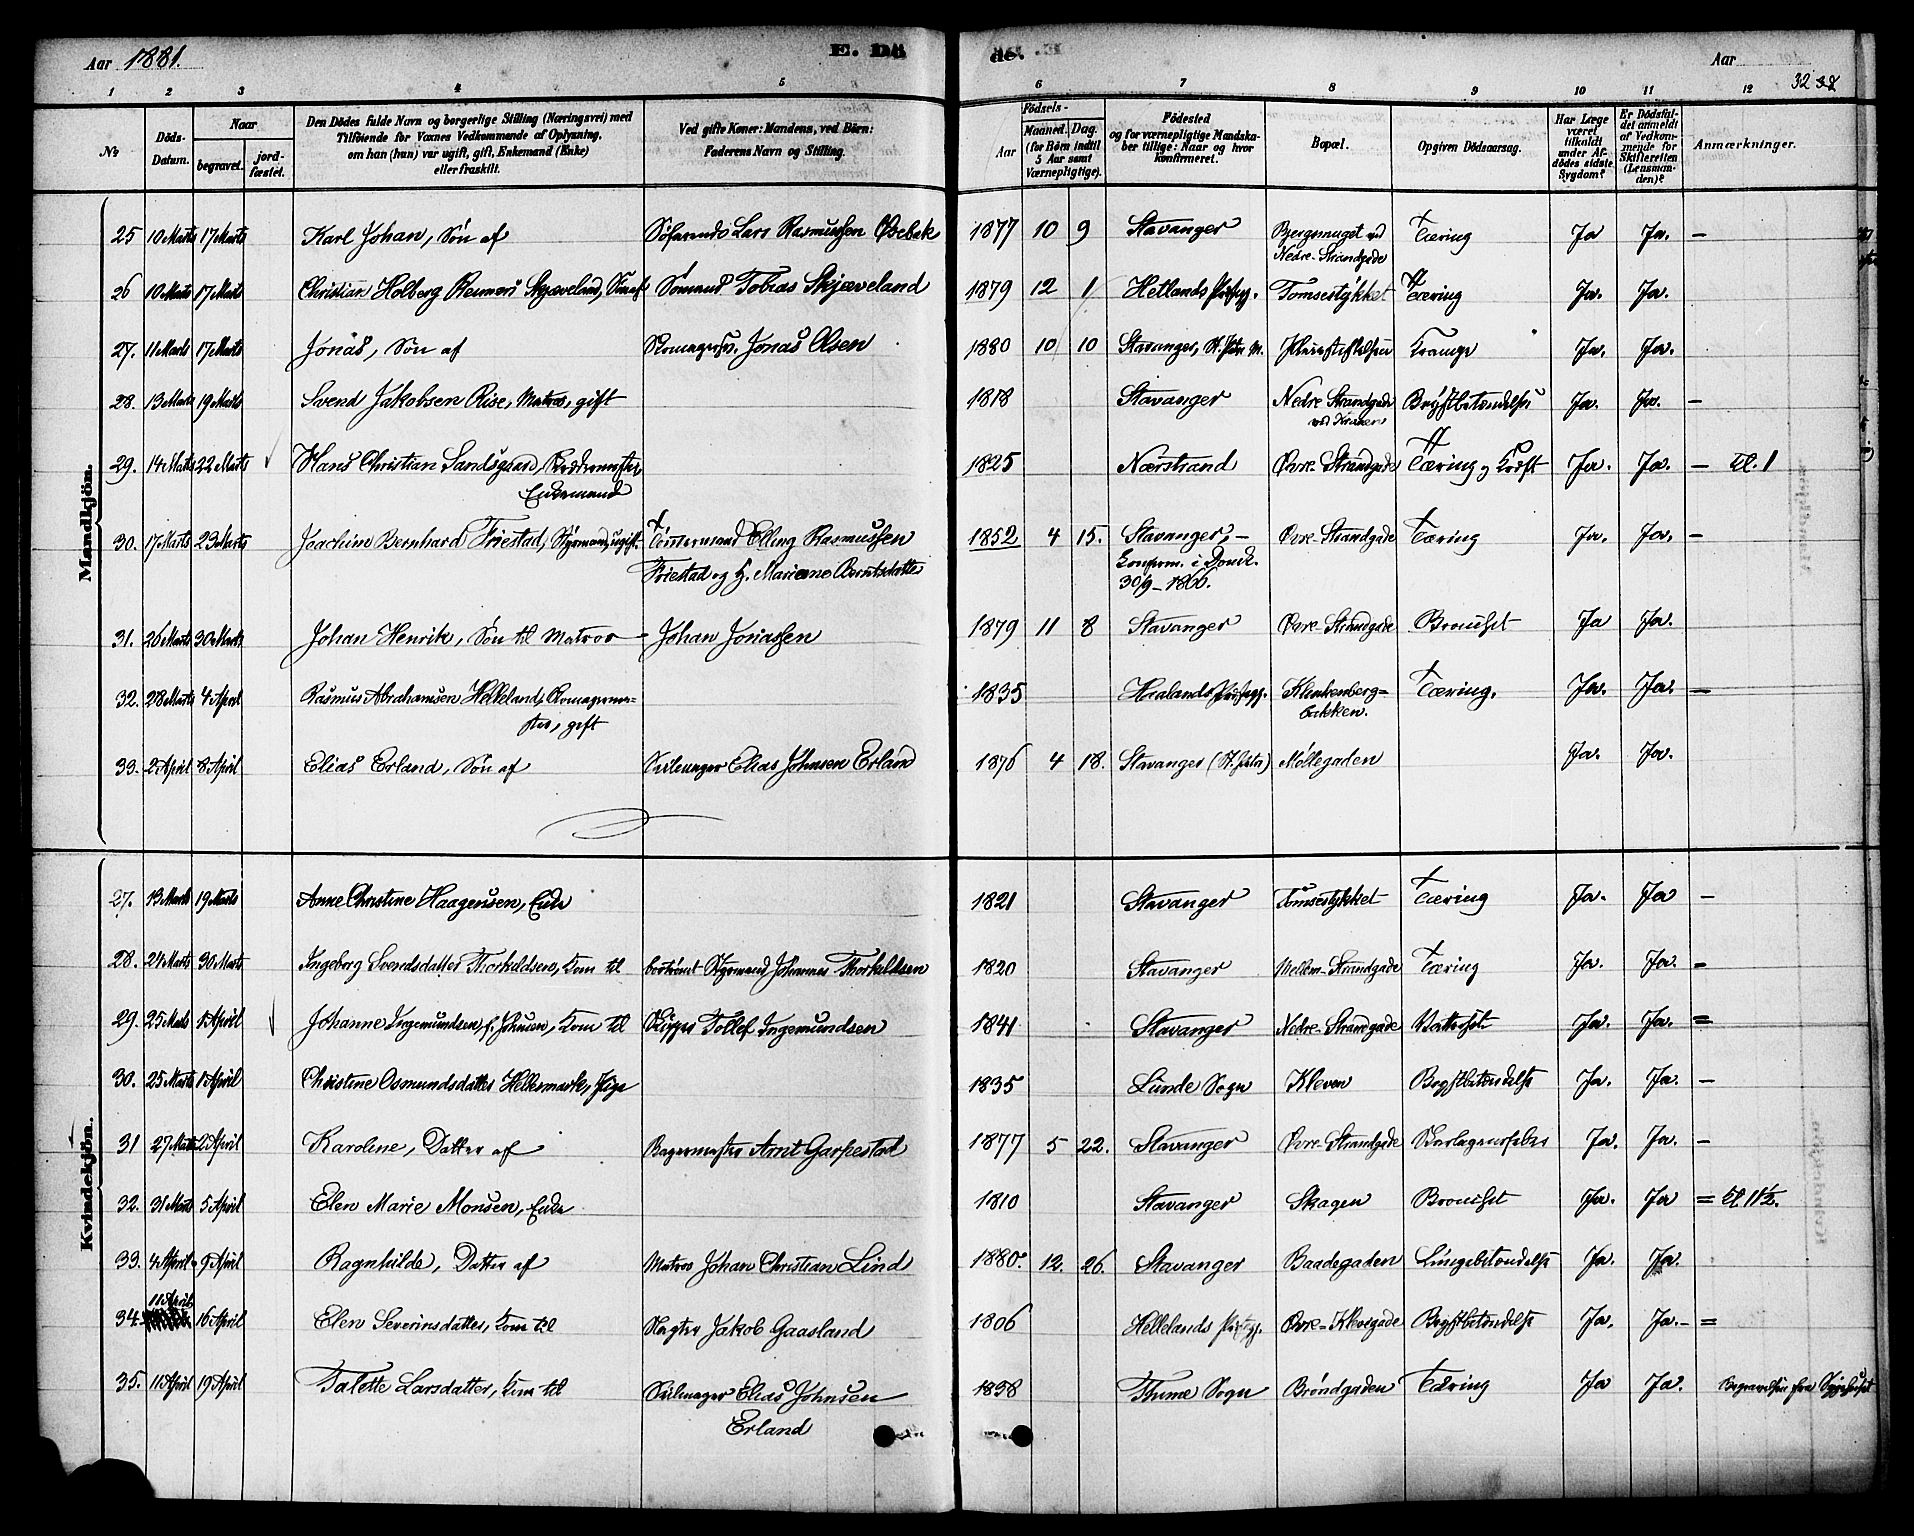 Aar 1881.
E. Dö
de.
Aar
32
1 2 3 4 5 6 7 8 9 10 11 12
No
Döds-Datum.
Naar
begravet.
jordfæstet.
Den Dödes fulde Navn og borgerlige Stilling (Næringsvei) med
Tilföiende for Voxnes Vedkommende af Oplysning,
om han (hun) var ugift, gift, Enkemand (Enke)
eller fraskilt.
Ved gifte Koner: Mandens, ved Börn:
Faderens Navn og Stilling.
Födsels-
Aar
Maaned. Dag.
(for Börn indtil
5 Aar samt
Værnepligtige).
Födested
og for værnepligtige Mandska-
ber tillige: Naar og hvor
konfirmeret.
Bopæl.
Opgiven Dödsaarsag.
Har Læge
været
tilkaldt
under Af-
dödes sidste
Sygdom?
Er Dödsfal-
det anmeldt
af Vedkom-
mende for
Skifteretten
(Lensman-
den)?
Anmærkninger.
Mandkjön.
25 10 Marts 17 Marts Karl Johan, Sön af Söfarende Lars Rasmussen 1877 10 9 Stavanger Bergsmuget ved Tæring Ja Ja. –
Nedre-Strandgade
26 10 Marts 17 Marts Christian Holberg Skjæveland, Sön af Sömand Tobias Skjæveland 1879 12 1 Hetlands Tomsestykket Tæring Ja. Ja.
27. 11 Marts 17 Marts Jonas, Sön af Jonas Olsen 1880 10 10 Stavanger, Krampe Ja. Ja.
28. 13 Marts 19 Marts Svend Jakobsen Rise, Matros, gift 1818 Stavanger Nedre Strandgade Brystbetændelse Ja. Ja. –
29. 14 Marts 22 Marts Hans Christian Sandsgaard, 1825 Nærstrand Øvre-Strandgade Tæring og Kræft Ja. Ja. – Kl. 1
Enkemand
30. 17 Marts 23 Marts Joachim Bernhard Friestad, Styrmand, ugift. Töndermand Elling Rasmussen 1852 4 15. Stavanger, – Øvre-Strandgade Tæring Ja. Ja. –
Friestad og H. Mariane Berntsdatter Konfirm. i Domk.
30/9 – 1866.
31. 26 Marts 30 Marts Johan Henrik, Sön til Matros – Johan Jonassen 1879 11 8 Stavanger Øvre-Strandgade Bronchit Ja Ja.
32. 28 Marts 4 April Rasmus Abrahamsen Helleland, Skomagerme- 1835 Haalands Klinkenberg- Tæring. Ja. Ja. –
ster, gift bakken.
33. 2 April 8 April Elias Erland, Sön af Seilmager Elias Johnsen Erland 1876 4 18. Stavanger (St. Petri) Möllegaden Ja. Ja.
Kvindekjön.
27. 13 Marts 19 Marts Anne Christine Haagensen, Enke 1821 Stavanger Tomsestykket Tæring Ja. Ja –
28. 24 Marts 30 Marts Ingeborg Svendsdatter Thorkildsen, Kone til bortrömt Styrmand Johannes Thorkildsen 1820 Stavanger Mellem-Strandgade Tæring Ja. Ja. =
29. 25 Marts 1 April Johanne Ingemundsen, f. Johnsen, Kone til Skipper Tollef Ingemundsen 1841 Stavanger Nedre-Strandgade Vattersot Ja. Ja. =
30. 25 Marts 1 April Christine Osmundsdatter Hellesmark, Pige 1835 Lunde Sogn Kleven Brystbetændelse Ja. Ja. –
31 27 Marts 2 April Karoline, Datter af Bagermester Arnt Garpestad 1877 5 22. Stavanger Øvre-Strandgade Skarlagensfeber Ja. Ja. –
32. 31 Marts 5 April Elen Marie Monsen, Enke 1810 Stavanger Skagen Bronchit Ja. Ja = Kl. 11½.
33. 4 April 9 April Ragnhilde, Datter af Matros Johan Christian Lind 1880. 12. 26. Stavanger Baadegaden Lungebetændelse Ja. Ja.
34. 11 April 16 April Elen Severinsdatter, Kone til Slagter Jakob Gaasland 1806 Hellelands Øvre-Klevegade Brystbetændelse Ja. Ja. – =
35. 11 April 19 April Talette Larsdatter, Kone til Seilmager Elias Johnsen 1858 Thime Sogn Bröndgaden Tæring Ja Ja. Begravelsen fra Sygehuset
Erland